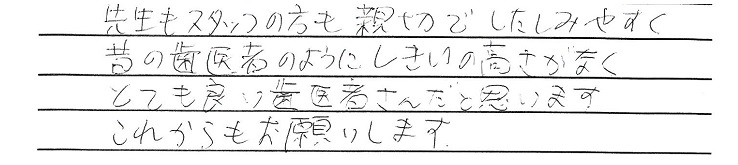 先生もスタッフの方も親切でしたしみやすく
昔の歯医者のようにしきいの高さがなく
とても良い歯医者さんだと思います
これからもお願いします